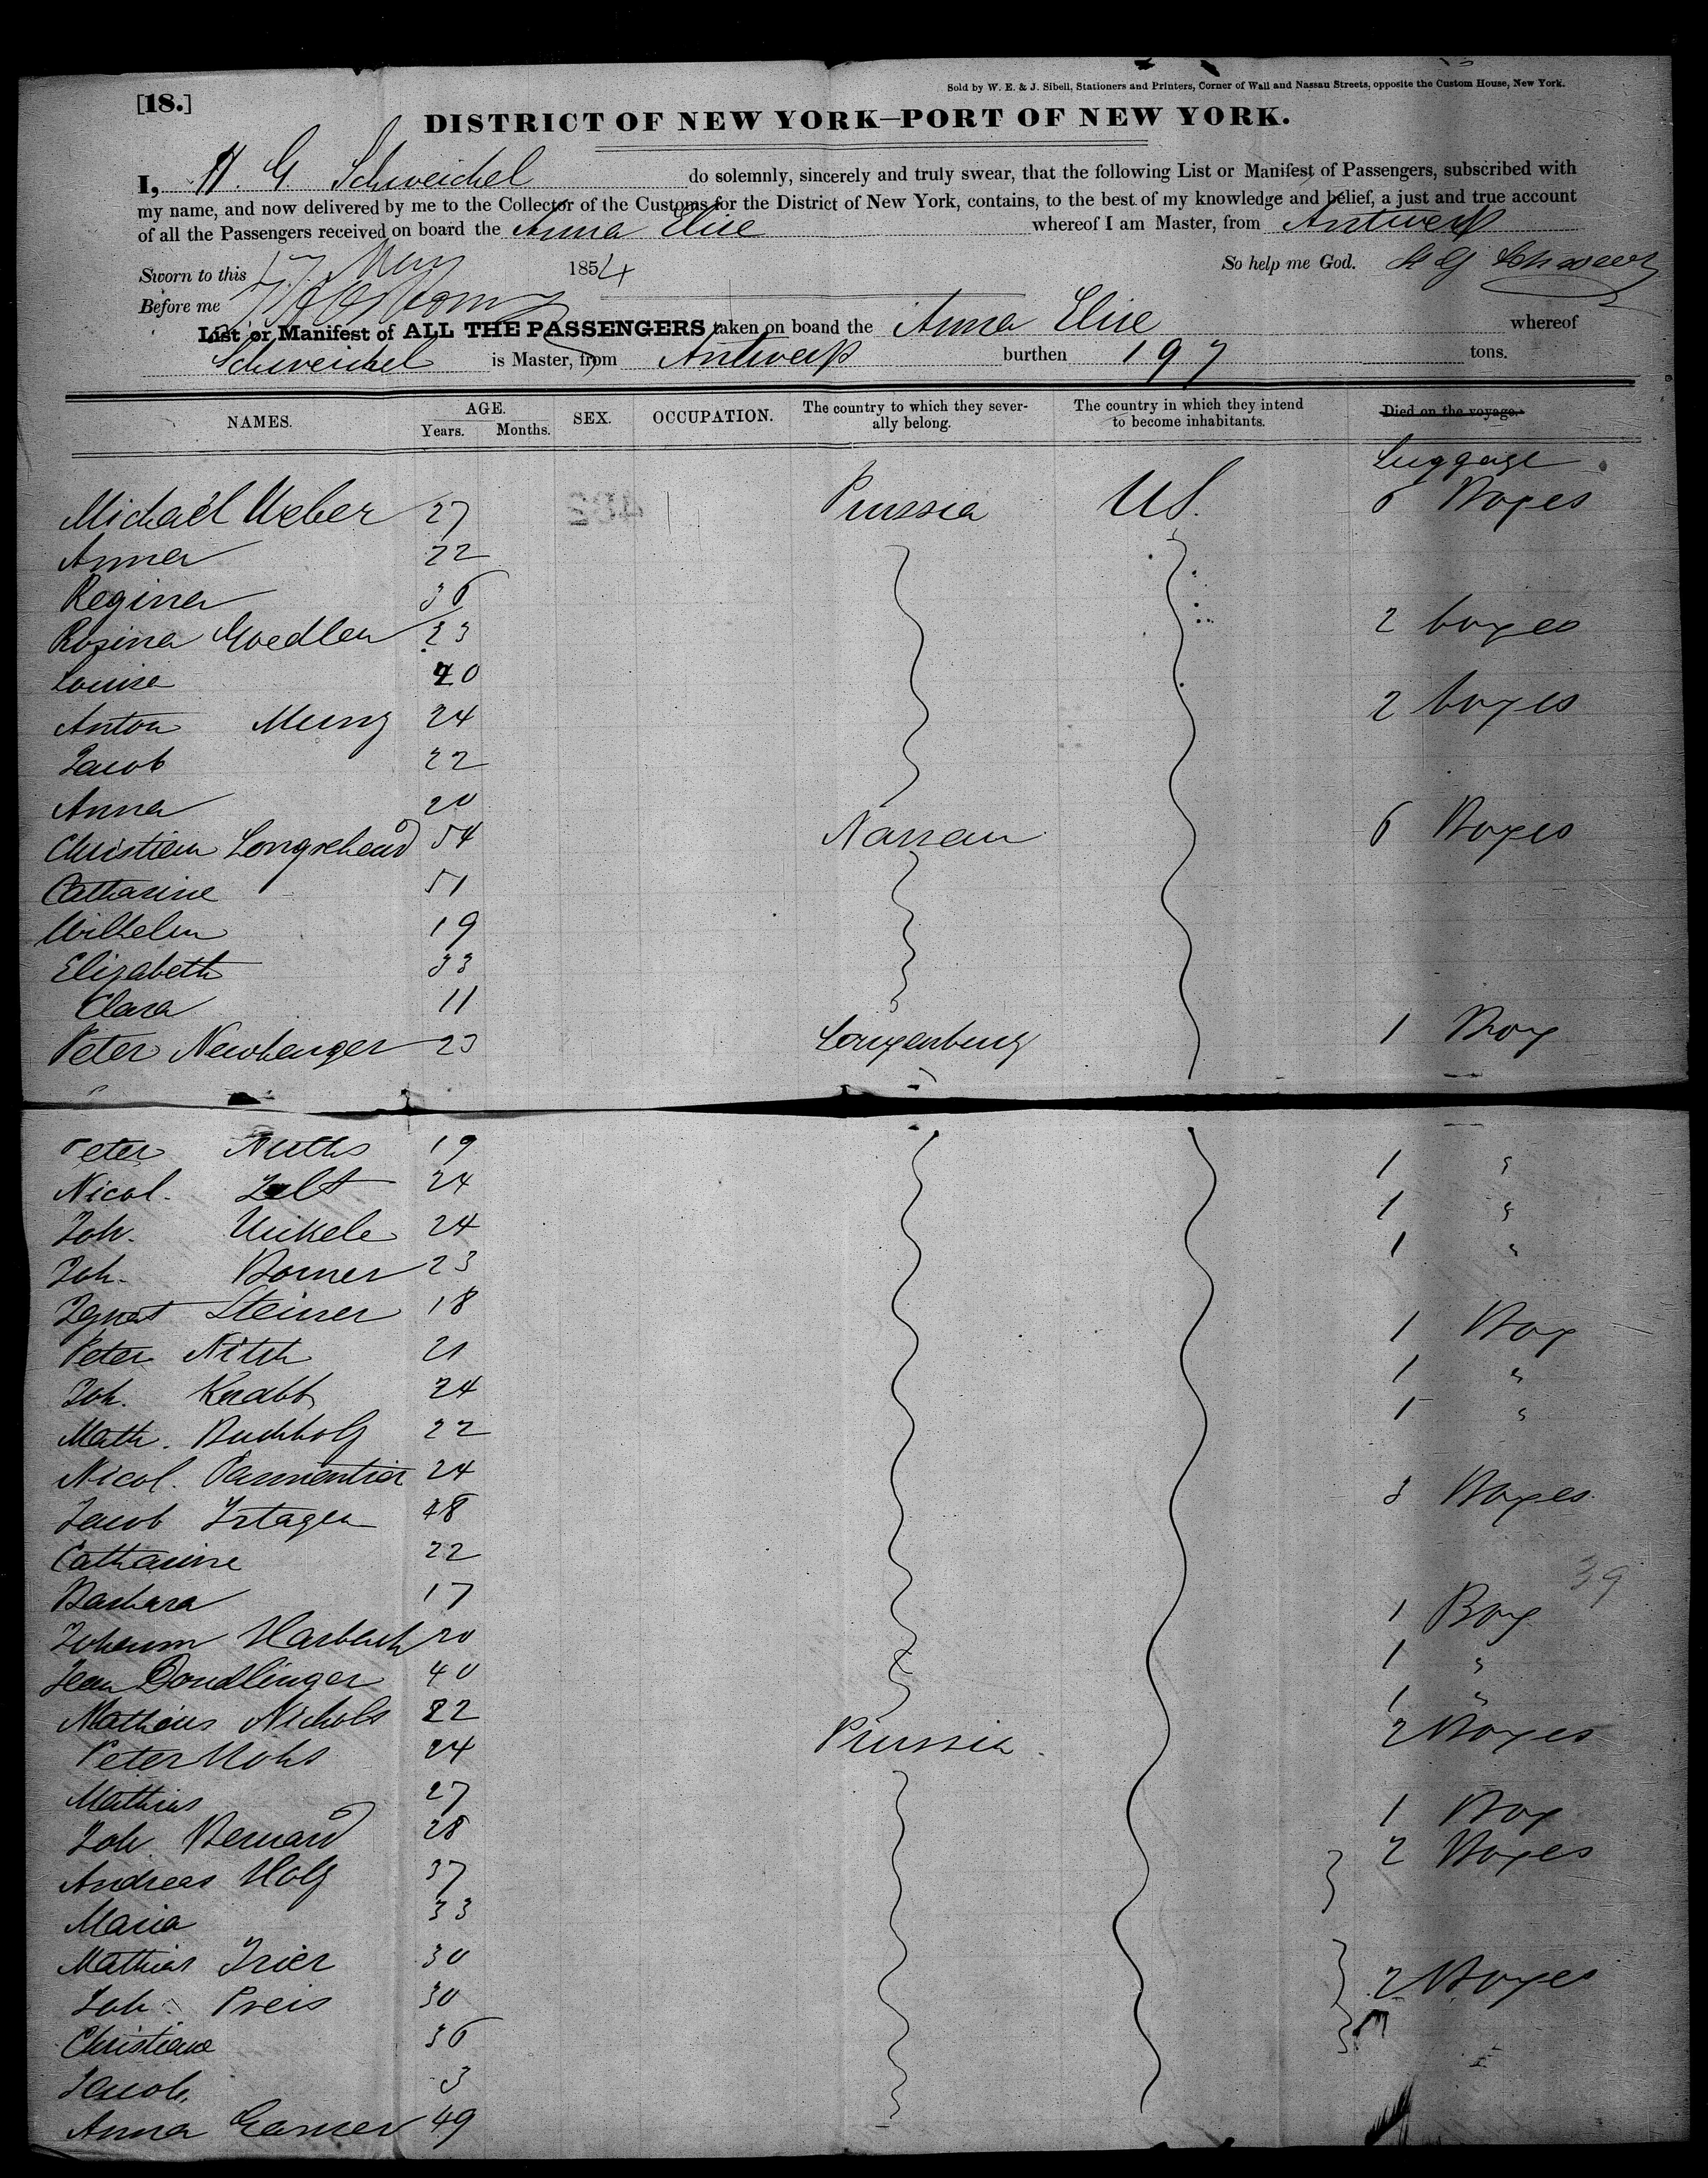 [18.]
Sold by W. E. & J. Sibell, Stationers and Printers, Corner of Wall and Nassau Streets, opposite the Custom House, New York.
DISTRICT OF NEW YORK—PORT OF NEW YORK.
I, H. G Schweichel do solemnly, sincerely and truly swear, that the following List or Manifest of Passengers, subscribed with
my name, and now delivered by me to the Collector of the Customs for the District of New York, contains, to the best of my knowledge and belief, a just and true account
of all the Passengers received on board the Anna Elise whereof I am Master, from Antwerp
Sworn to this 17 May 1854 So help me God. H G
Before me
List or Manifest of ALL THE PASSENGERS taken on boand the Anna Elise whereof
Schweichel is Master, from Antwerp burthen 197 tons.
NAMES. AGE. Years. Months. SEX. OCCUPATION. The country to which they severally belong. The country in which they intend to become inhabitants. Died on the voyage.
Luggage
Michael Weber 27 Prussia US. 6 Boxes
Anna 22
Regina 36
Rosina 23 2 boxes
Louise 20
Anton 24 2 boxes
Jacob 22
Anna 20
Christian 54 Nassau 6 Boxes
Catharine 51
Wilhelm 19
Elizabeth 33
Clara 11
Peter Newberger 23 Luxenburg 1 Box
Peter Muths 19 1 "
Nicol. 24 1 "
Joh. 24 1 "
Joh. Borner 23
Ignat Steiner 18 1 Box
Peter Nitsh 21 1 "
Joh. Knabb 24 1 "
Math. Buchholz 22
Nicol. Parmentier 24 3 Boxes
Jacob 48
Catharine 22
Barbara 17 39
Johann Harbach 20 1 Box
Jean Dondlinger 40 1 "
Mathias Nichols 22 1 "
Peter Mohs 24 Prussia. 2 Boxes
Mathias 27
Joh. Bernard 28 1 Box
Andreas Holz 37 2 Boxes
Maria 33
Mathias Trier 30
Joh. Preis 30 2 Boxes
Christiane 36
Jacob. 3
Anna 49